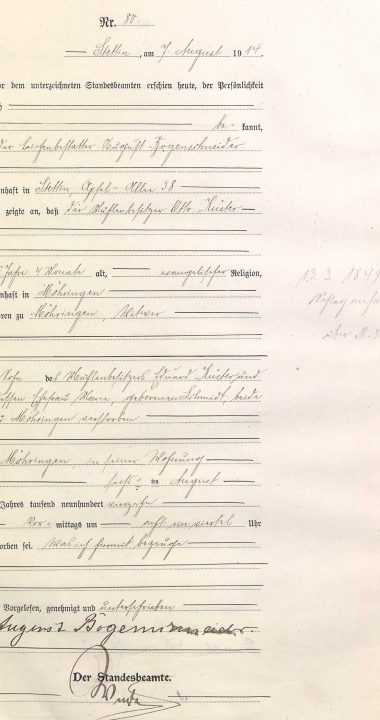 Nr. 80.
Stettin, am 7. August 1914.
or dem unterzeichneten Standesbeamten erschien heute, der Persönlichkeit
be- kannt,
der Leichenbestatter August Bögenschneider
nhaft in Stettin, Apfel-Allee 38
zeigte an, daß der Mühlenbesitzer Otto Küster
Jahre 4 Monate alt, evangelischer Religion,
nhaft in Möhringen
ren zu Möhringen, Witwer
Sohn des Mühlenbesitzers Eduard Küster und
dessen Ehefrau Marie, geborenen Schmidt, beide
zu Möhringen verstorben
Möhringen, in seiner Wohnung
sechs ten August
Jahres tausend neunhundert vierzehn
Vor- mittags um acht ein viertel Uhr
orben sei. Was ich hiermit bezeuge
Vorgelesen, genehmigt und unterschrieben
August Bögenschneider.
Der Standesbeamte.
13. 3. 184
über